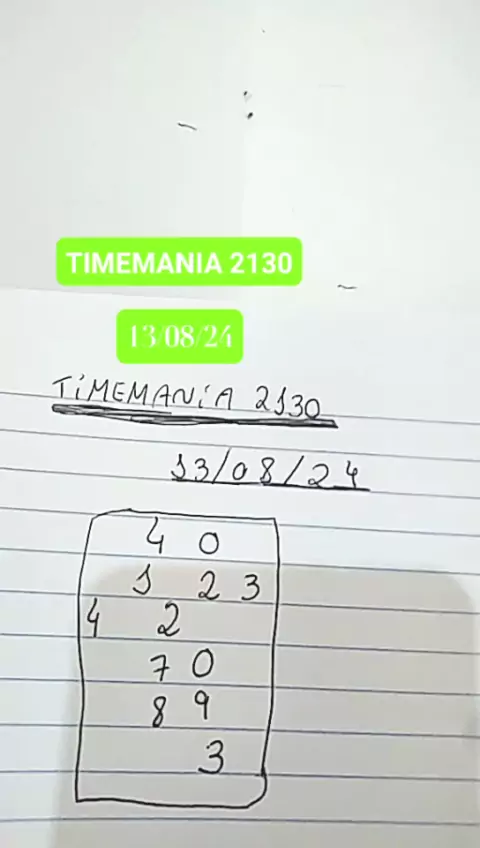 TIMEMANIA 2130
13/08/24
TiMEMANiA 2130
13/08/24
4 0
1 2 3
4 2
7 0
8 9
3